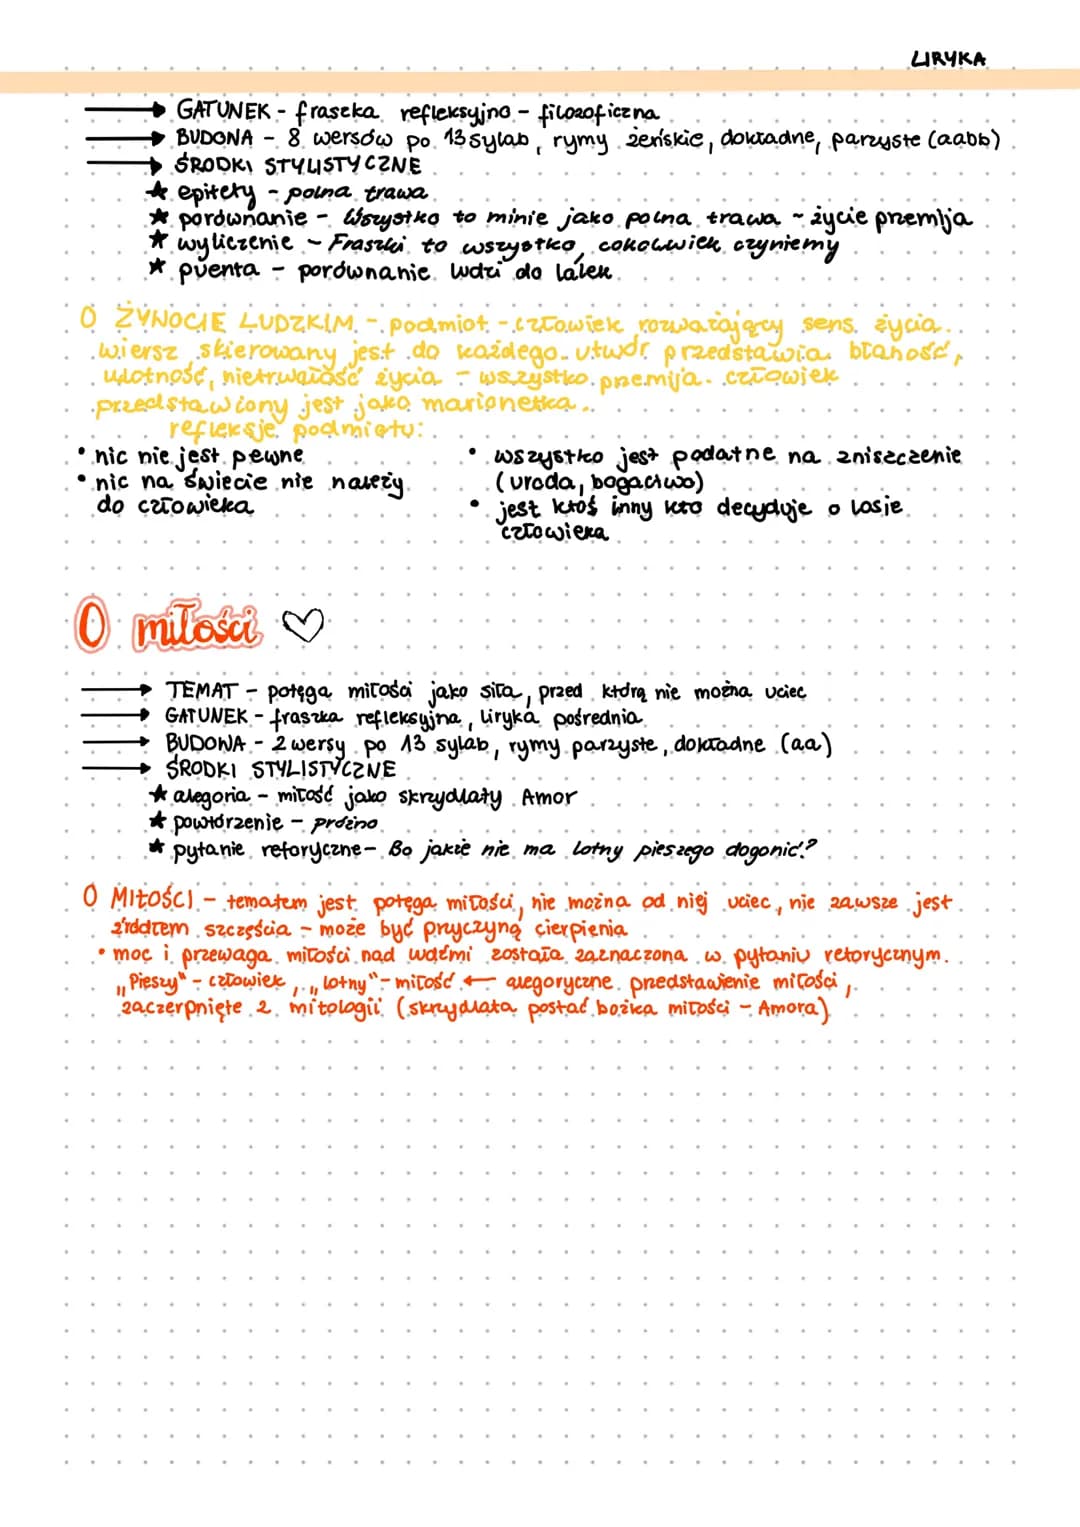 LIRYKA
→ GATUNEK - fraszka refleksyjno - filozoficzna
→ BUDOWA - 8 wersów po 13 sylab, rymy żeńskie, dokładne, parzyste (aabb)
→ ŚRODKI STYLISTYCZNE
★ epitety - polna trawa
★ porównanie - Wszystko to minie jako polna trawa ~ życie przemija
★ wyliczenie - Fraszki to wszystko, cokolwiek czyniemy
★ puenta - porównanie ludzi do lalek
O ŻYWOCIE LUDZKIM - podmiot - człowiek rozważający sens życia.
wiersz skierowany jest do każdego. utwór przedstawia błahość,
ulotność, nietrwałość życia - wszystko przemija. człowiek
przedstawiony jest jako marionetka.
refleksje podmiotu:
• nic nie jest pewne
• nic na świecie nie należy
do człowieka
• wszystko jest podatne na zniszczenie
(uroda, bogactwo)
• jest ktoś inny kto decyduje o losie
człowieka
O miłości ♡
→ TEMAT - potęga miłości jako siła, przed którą nie można uciec
→ GATUNEK - fraszka refleksyjna, liryka pośrednia
→ BUDOWA - 2 wersy po 13 sylab, rymy parzyste, dokładne (aa)
→ ŚRODKI STYLISTYCZNE
★ alegoria - miłość jako skrzydlaty Amor
★ powtórzenie - próżno
★ pytanie retoryczne - Bo jakże nie ma lotny pieszego dogonić?
O MIŁOŚCI - tematem jest potęga miłości, nie można od niej uciec, nie zawsze jest
źródłem szczęścia - może być przyczyną cierpienia
• moc i przewaga miłości nad ludźmi została zaznaczona w pytaniu retorycznym.
„Pieszy" - człowiek, „lotny" - miłość ← alegoryczne przedstawienie miłości,
zaczerpnięte z mitologii (skrzydlata postać bożka miłości - Amora)